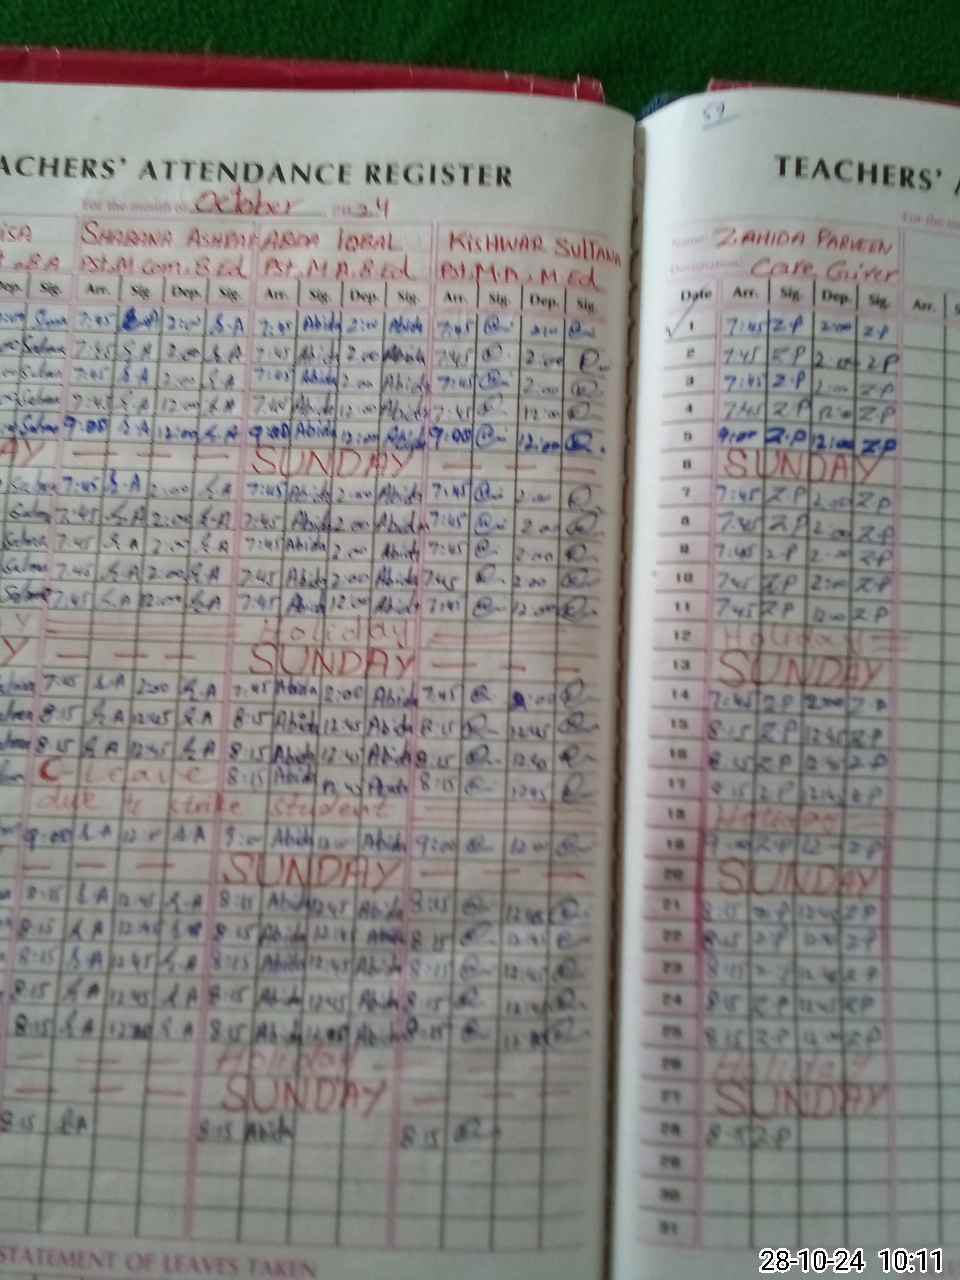 TEACHERS' ATTENDANCE REGISTER
For the month of October 24
SHABANA ASHRAF ABIDA IQBAL KISHWAR SULTANA
Pst, M.com, B.Ed Pst, M.A, B.Ed Pst, M.A, M.Ed
Dep. Sig. Arr. Sig. Dep. Sig. Arr. Sig. Dep. Sig. Arr. Sig. Dep. Sig.
7:45 2:00 S.A 7:45 Abida 2:00 Abida 7:45 2:00
7:45 S.A 2:00 S.A 7:45 Abida 2:00 Abida 7:45 2:00
7:45 S.A 2:00 S.A 7:45 Abida 2:00 Abida 7:45 2:00
7:45 S.A 12:00 S.A 7:45 Abida 12:00 Abida 7:45 12:00
9:00 S.A 12:00 S.A 9:00 Abida 12:00 Abida 9:00 12:00
SUNDAY
7:45 S.A 2:00 S.A 7:45 Abida 2:00 Abida 7:45 2:00
7:45 S.A 2:00 S.A 7:45 Abida 2:00 Abida 7:45 2:00
7:45 S.A 2:00 S.A 7:45 Abida 2:00 Abida 7:45 2:00
7:45 S.A 2:00 S.A 7:45 Abida 2:00 Abida 7:45 2:00
7:45 S.A 12:00 S.A 7:45 Abida 12:00 Abida 7:45 12:00
Holiday
SUNDAY
7:45 S.A 2:00 S.A 7:45 Abida 2:00 Abida 7:45 2:00
8:15 S.A 12:45 S.A 8:15 Abida 12:45 Abida 8:15 12:45
8:15 S.A 12:45 S.A 8:15 Abida 12:45 Abida 8:15 12:45
C - leave 8:15 Abida 12:45 Abida 8:15 12:45
due to strike student
9:00 S.A 12:00 S.A 9:00 Abida 12:00 Abida 9:00 12:00
SUNDAY
8:15 S.A 12:45 S.A 8:15 Abida 12:45 Abida 8:15 12:45
8:15 S.A 12:45 8:15 Abida 12:45 Abida 8:15 12:45
8:15 S.A 12:45 S.A 8:15 Abida 12:45 Abida 8:15 12:45
8:15 S.A 12:45 S.A 8:15 Abida 12:45 Abida 8:15 12:45
8:15 S.A S.A 8:15 Abida Abida 8:15
Holiday
SUNDAY
8:15 S.A 8:15 Abida 8:15
STATEMENT OF LEAVES TAKEN
59
TEACHERS'
For the
Name ZAHIDA PARVEEN
Designation Care Giver
Date Arr. Sig. Dep. Sig. Arr.
1 7:45 Z.P 2:00 Z.P
2 7:45 Z.P 2:00 Z.P
3 7:45 Z.P 2:00 Z.P
4 7:45 Z.P 12:00 Z.P
5 9:00 Z.P 12:00 Z.P
6 SUNDAY
7 7:45 Z.P 2:00 Z.P
8 7:45 Z.P 2:00 Z.P
9 7:45 Z.P 2:00 Z.P
10 7:45 Z.P 2:00 Z.P
11 7:45 Z.P 12:00 Z.P
12 Holiday
13 SUNDAY
14 7:45 Z.P 2:00 Z.P
15 8:15 Z.P 12:45 Z.P
16 8:15 Z.P 12:45 Z.P
17 8:15 Z.P 12:45 Z.P
18 Holiday
19 9:00 Z.P 12 Z.P
20 SUNDAY
21 8:15 Z.P 12:45 Z.P
22 8:15 Z.P 12:45 Z.P
23 8:15 Z.P 12:45 Z.P
24 8:15 Z.P 12:45 Z.P
25 8:15 Z.P 12:00 Z.P
26 Holiday
27 SUNDAY
28 8:15 Z.P
29
30
31
28-10-24 10:11